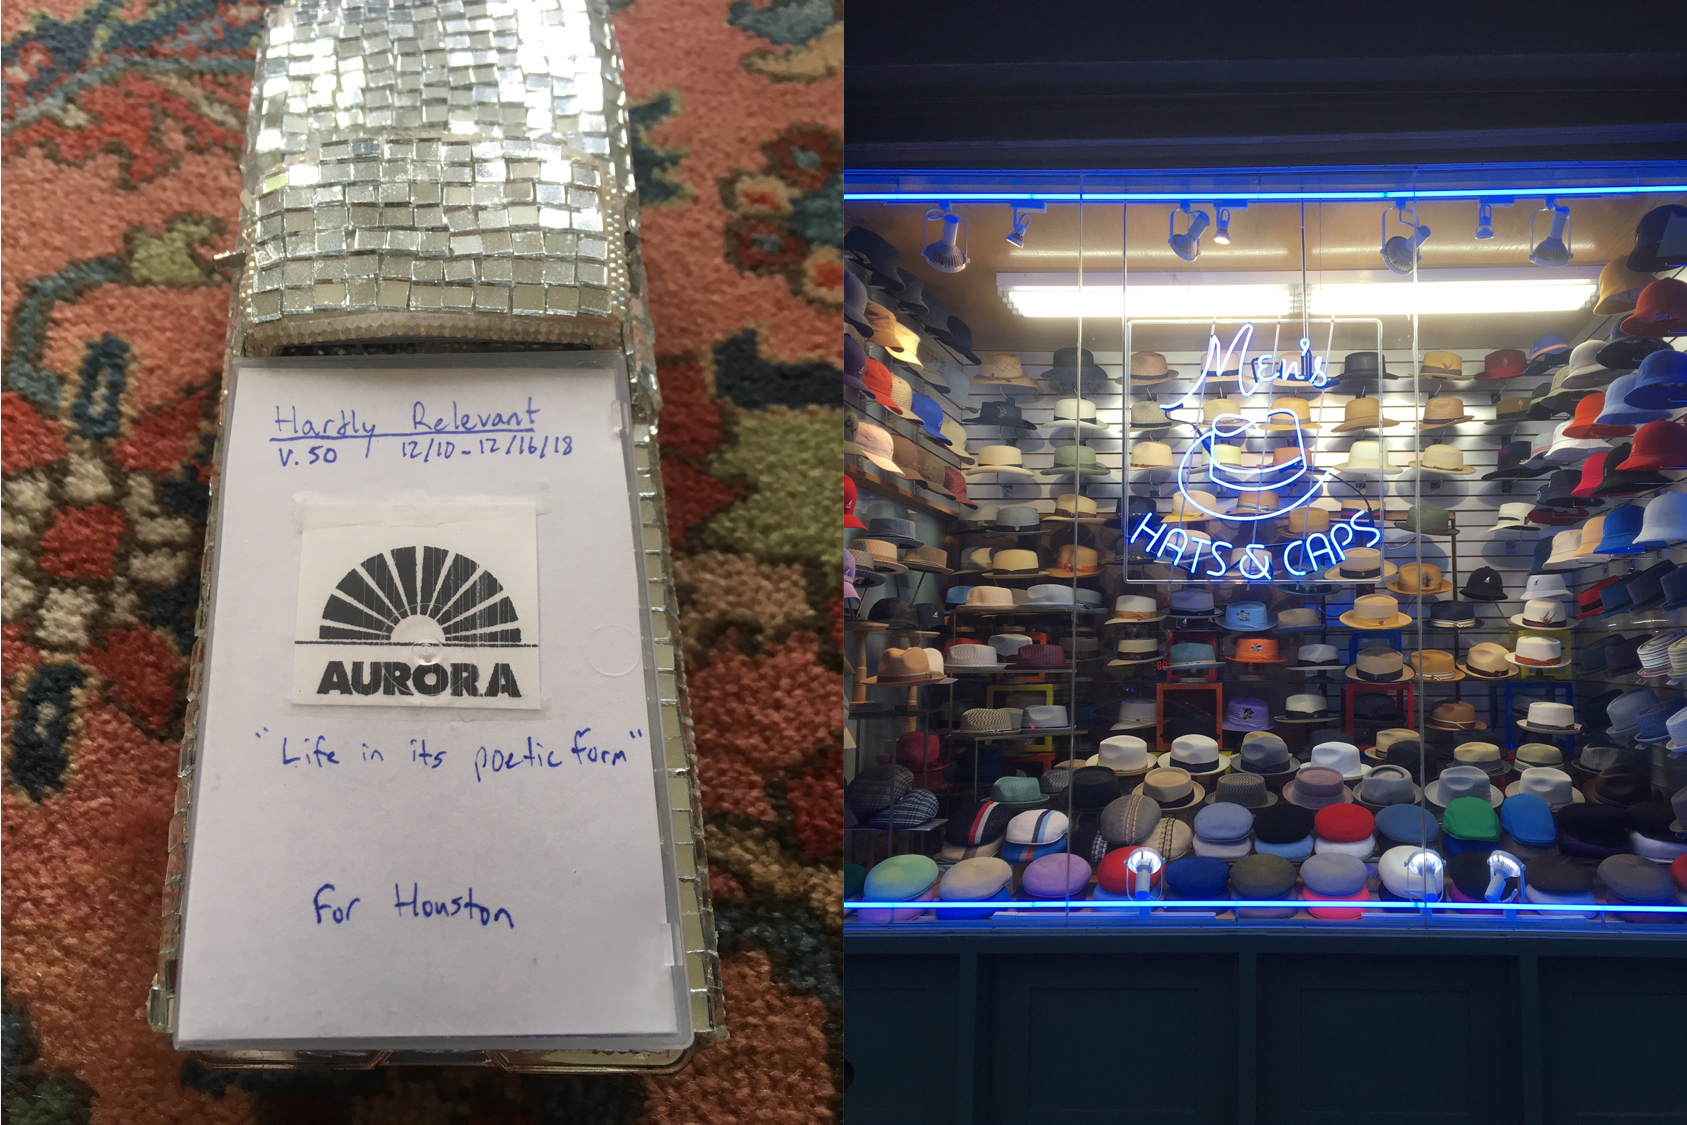 Hardly Relevant
V. 50 12/10-12/16/18
AURORA
"Life in its poetic form"
For Houston
Men's
HATS & CAPS